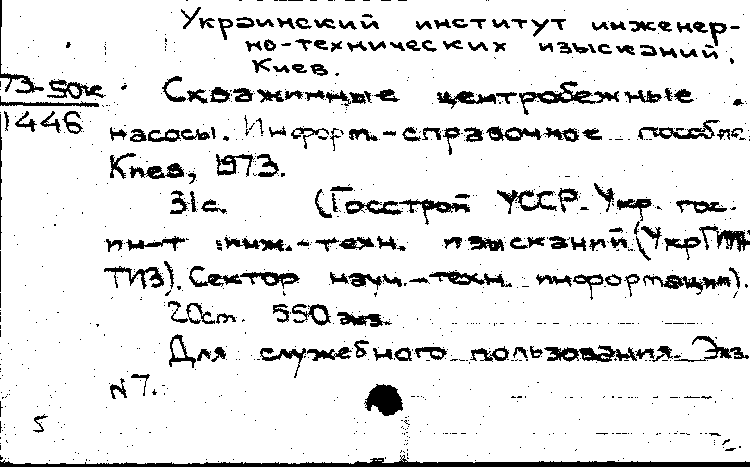 Украинский институт инженер-
но-технических изысканий.
Киев.
73-50к
1446
Скважинные центробежные
насосы. Информ.-справочное пособие
Киев, 1973.
31с. (Госстрой УССР. Укр. гос.
ин-т инж.-техн. изысканий (УкрГИИН
ТИЗ). Сектор науч.-техн. информации).
20см. 550 экз.
Для служебного пользования. Экз.
N 7.
5